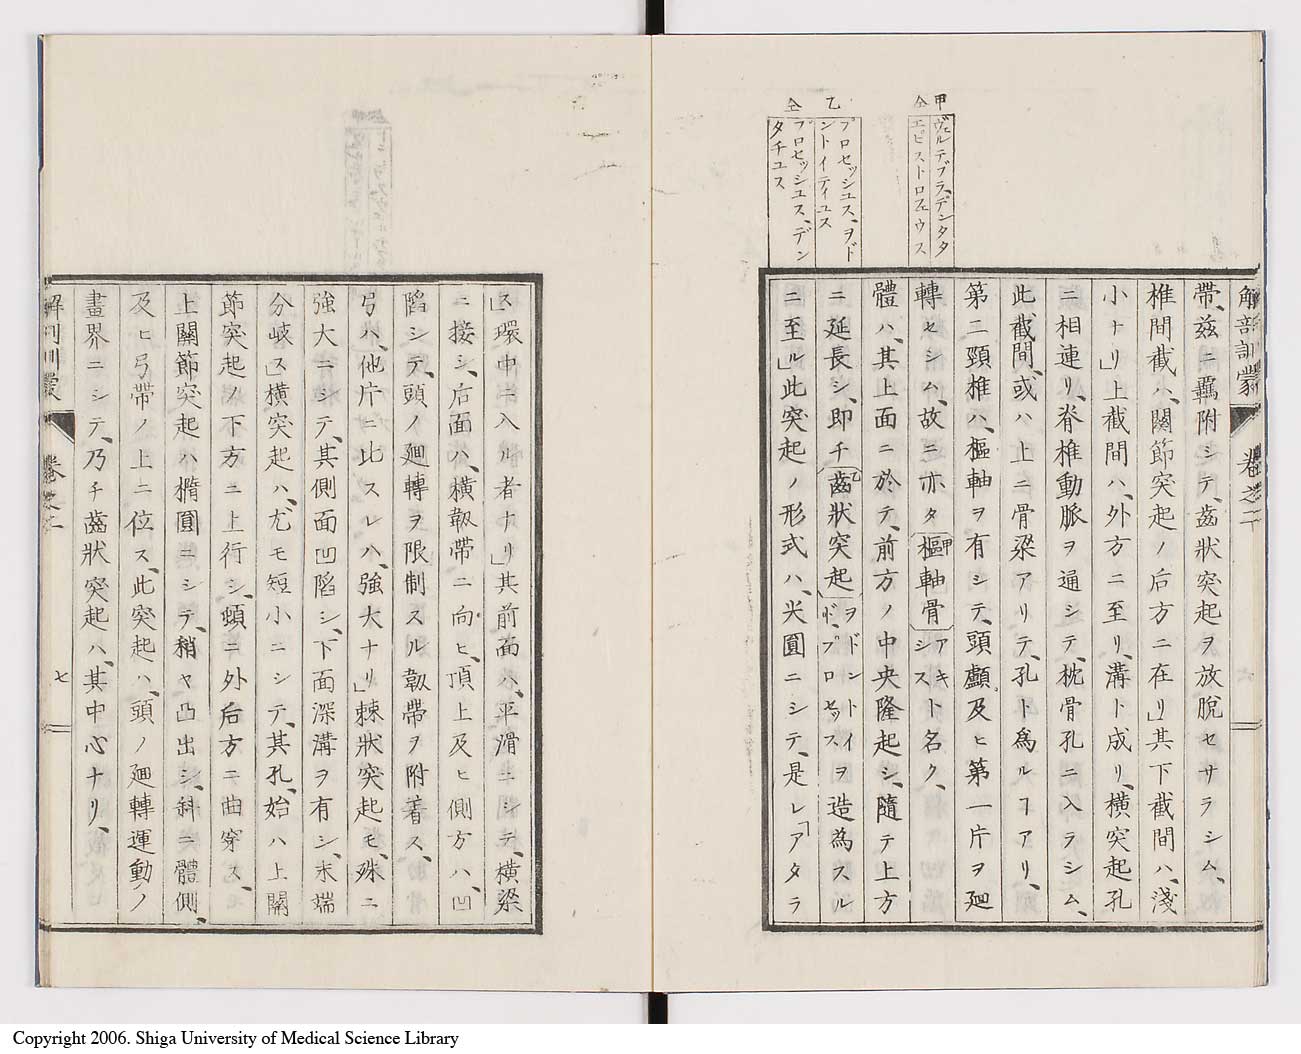 甲
ヴェルテブラ、デンタタ
仝
エピストロフェウス
乙
プロセッシュス、ヲド
ントイディユス
仝
プロセッシュス、デン
タチュス
解剖訓蒙 卷之二
帶、茲ニ羈附シテ、齒狀突起ヲ放脫セサラシム、
椎間截ハ、關節突起ノ后方ニ在リ」其下截間ハ、淺
小ナリ」上截間ハ、外方ニ至リ、溝ト成リ、橫突起孔
ニ相連リ、脊椎動脈ヲ通シテ、枕骨孔ニ入ラシム、
此截間、或ハ上ニ骨梁アリテ、孔ト爲ルヿアリ、
第二頸椎ハ、樞軸ヲ有シテ、頭顱及ヒ第一片ヲ廻
轉セシム、故ニ亦タ樞軸骨甲アキシストト名ク、
體ハ、其上面ニ於テ、前方ノ中央隆起シ、隨テ上方
ニ延長シ、卽チ齒狀突起乙ヲドントイド、プロセッスヲ造爲スル
ニ至ル」此突起ノ形式ハ、尖圓ニシテ、是レ「アタラ
ス」環中ニ入ル者ナリ」其前面ハ、平滑ニシテ、橫梁
ニ接シ、后面ハ、橫靱帶ニ向ヒ、頂上及ヒ側方ハ、凹
陷シテ、頭ノ廻轉ヲ限制スル靱帶ヲ附着ス、
弓ハ、他片ニ比スレハ、強大ナリ」棘狀突起モ、殊ニ
強大ニシテ、其側面凹陷シ、下面深溝ヲ有シ、末端
分岐ス」橫突起ハ、尤モ短小ニシテ、其孔、始ハ上關
節突起ノ下方ニ上行シ、頓ニ外后方ニ曲穿ス、
上關節突起ハ楕圓ニシテ、稍ヤ凸出シ、斜ニ體側、
及ヒ弓帶ノ上ニ位ス、此突起ハ、頭ノ廻轉運動ノ
畫界ニシテ、乃チ齒狀突起ハ、其中心ナリ、
解剖訓蒙 卷之二 七